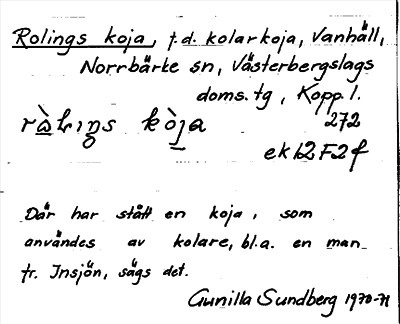 Rolings koja, f.d. kolarkoja, Vanhäll,
Norrbärke sn, Västerbergslags
doms. tg, Kopp. l.
272
ek 12F2f
Där har stått en koja, som
användes av kolare, bl.a. en man
fr. Insjön, sägs det.
Gunilla Sundberg 1970-71